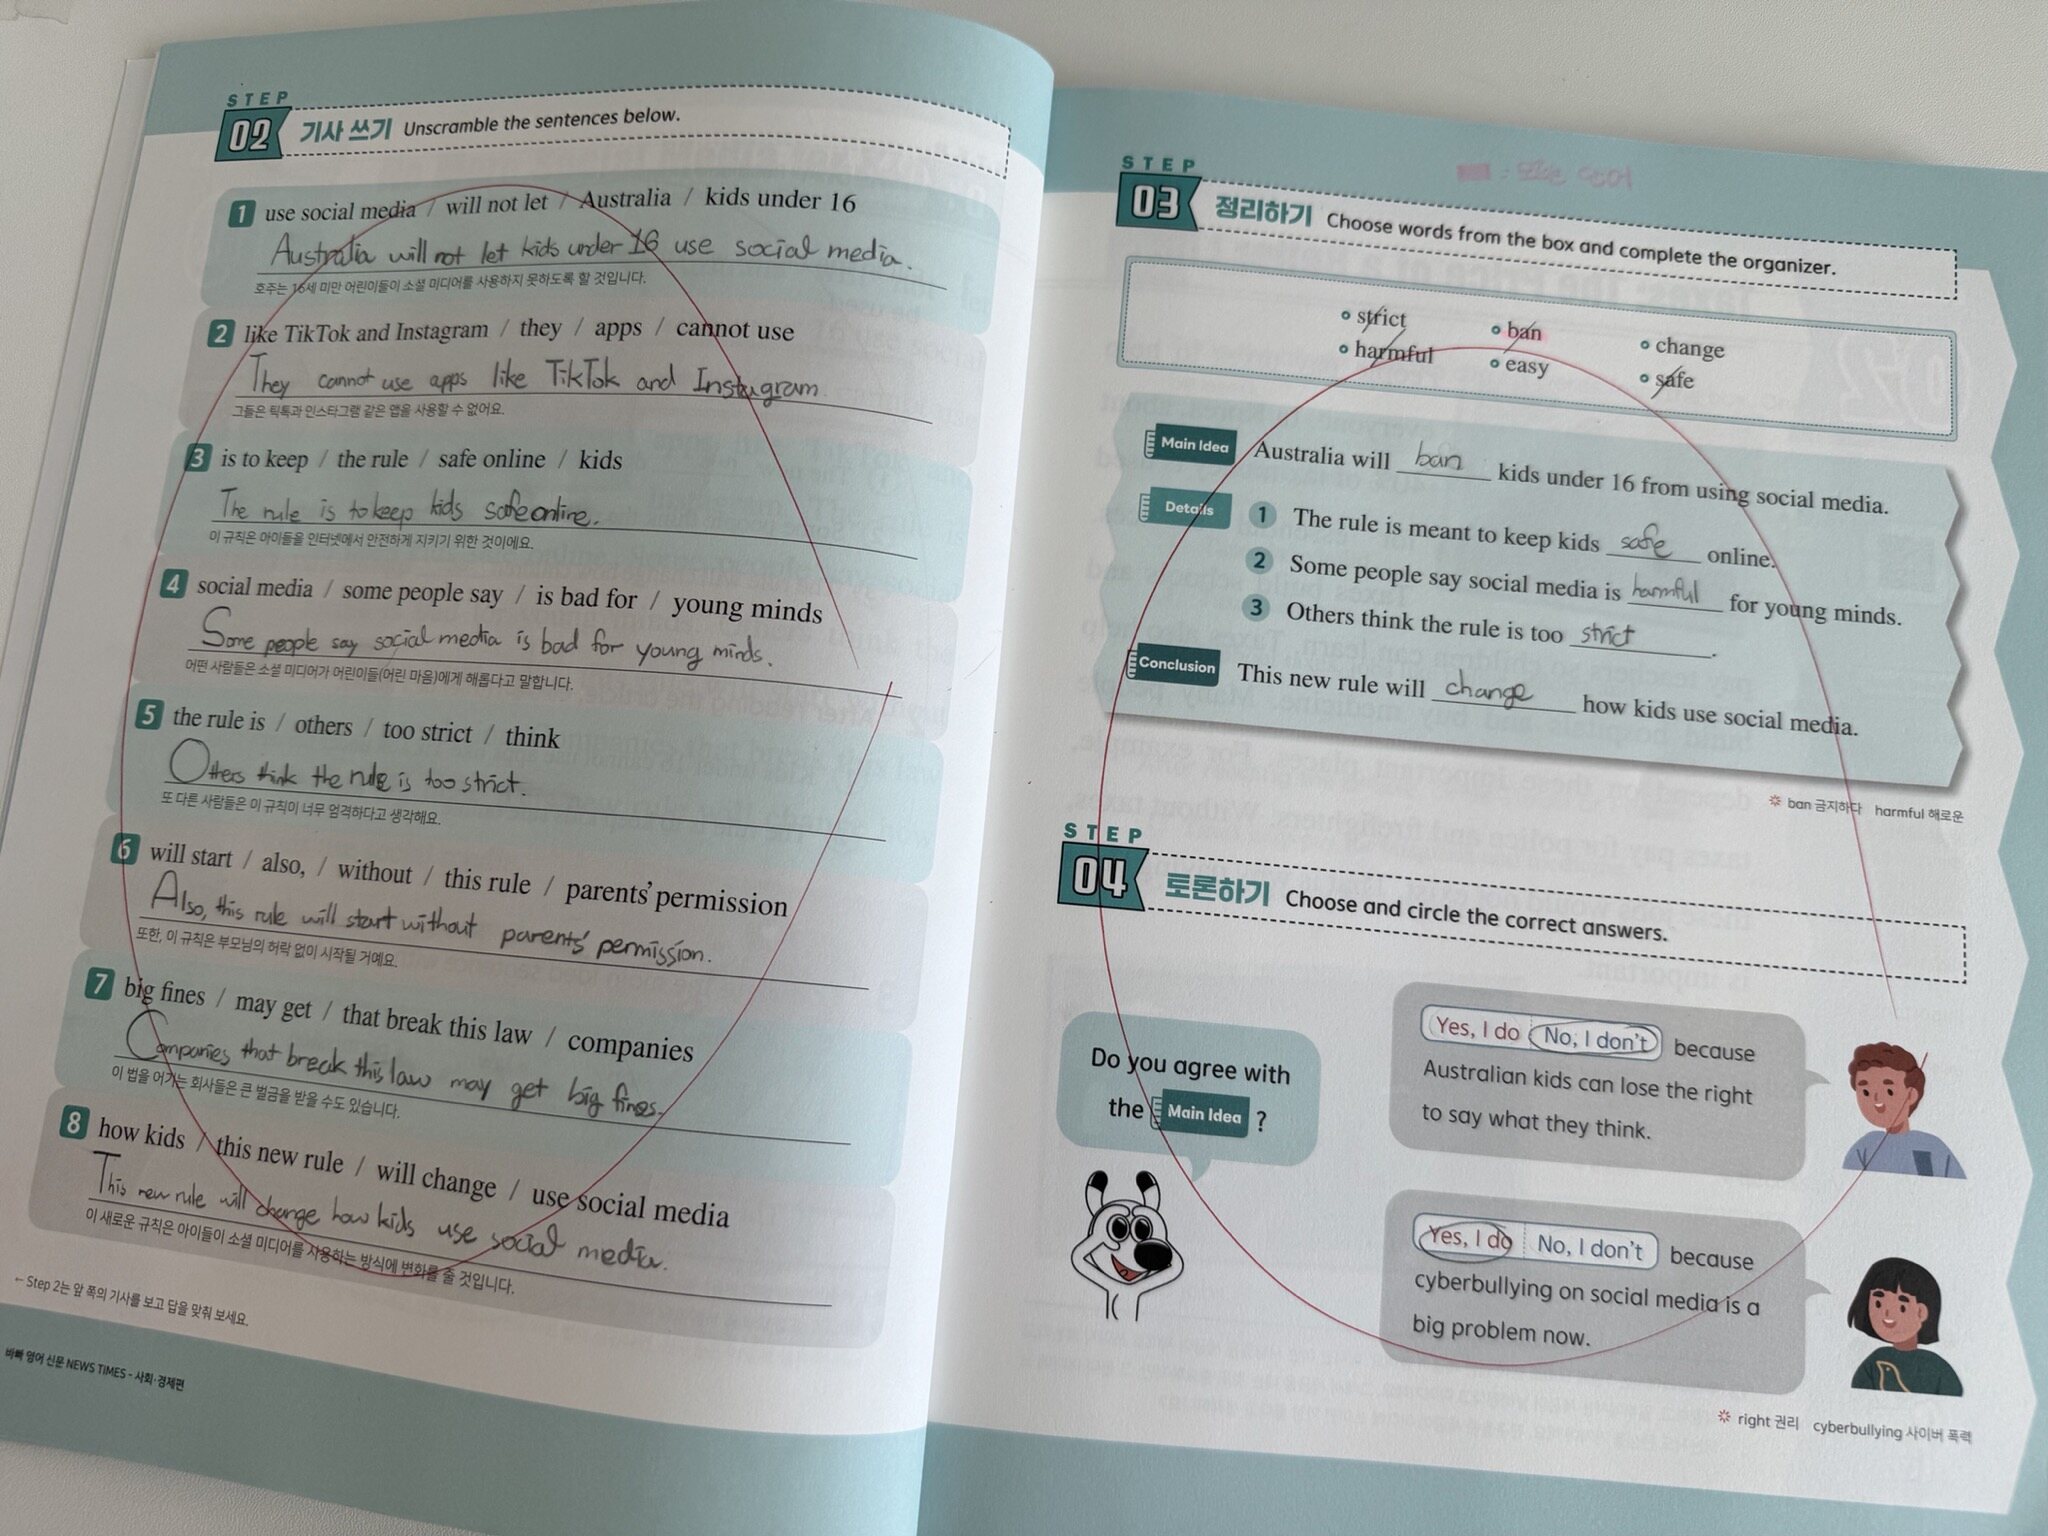 STEP
02 기사 쓰기 Unscramble the sentences below.
1 use social media / will not let / Australia / kids under 16
Australia will not let kids under 16 use social media.
호주는 16세 미만 어린이들이 소셜 미디어를 사용하지 못하도록 할 것입니다.
2 like TikTok and Instagram / they / apps / cannot use
They cannot use apps like TikTok and Instagram.
그들은 틱톡과 인스타그램 같은 앱을 사용할 수 없어요.
3 is to keep / the rule / safe online / kids
The rule is to keep kids safe online.
이 규칙은 아이들을 인터넷에서 안전하게 지키기 위한 것이에요.
4 social media / some people say / is bad for / young minds
Some people say social media is bad for young minds.
어떤 사람들은 소셜 미디어가 어린이들(어린 마음)에게 해롭다고 말합니다.
5 the rule is / others / too strict / think
Others think the rule is too strict.
또 다른 사람들은 이 규칙이 너무 엄격하다고 생각해요.
6 will start / also, / without / this rule / parents' permission
Also, this rule will start without parents' permission.
또한, 이 규칙은 부모님의 허락 없이 시작될 거예요.
7 big fines / may get / that break this law / companies
Companies that break this law may get big fines.
이 법을 어기는 회사들은 큰 벌금을 받을 수도 있습니다.
8 how kids / this new rule / will change / use social media
This new rule will change how kids use social media.
이 새로운 규칙은 아이들이 소셜 미디어를 사용하는 방식에 변화를 줄 것입니다.
← Step 2는 앞 쪽의 기사를 보고 답을 맞춰 보세요.
바빠 영어 신문 NEWS TIMES - 사회·경제편
STEP
03 정리하기 Choose words from the box and complete the organizer.
strict ban change
harmful easy safe
Main Idea Australia will ban kids under 16 from using social media.
Details 1 The rule is meant to keep kids safe online.
2 Some people say social media is harmful for young minds.
3 Others think the rule is too strict.
Conclusion This new rule will change how kids use social media.
ban 금지하다 harmful 해로운
STEP
04 토론하기 Choose and circle the correct answers.
Do you agree with
the Main Idea ?
Yes, I do No, I don't because
Australian kids can lose the right
to say what they think.
Yes, I do No, I don't because
cyberbullying on social media is a
big problem now.
right 권리 cyberbullying 사이버 폭력